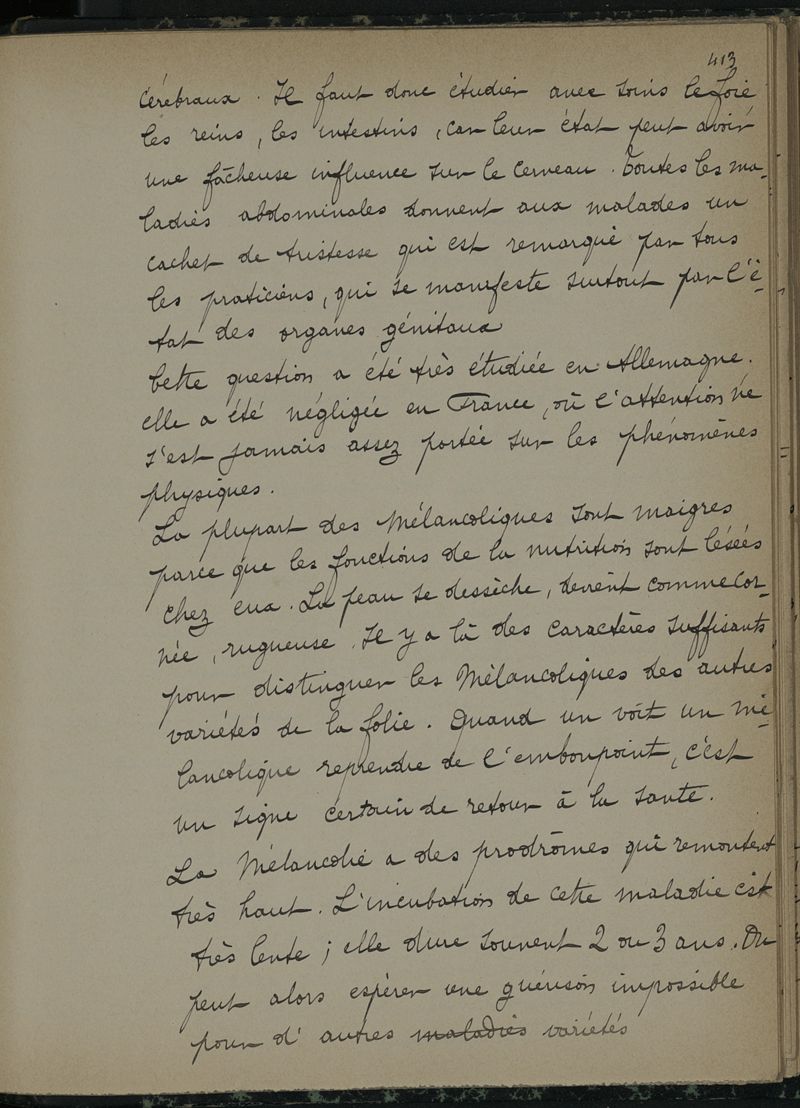 413
cérébraux. Il faut donc étudier avec soins le foie
les reins, les intestins, car leur état peut avoir
une fâcheuse influence sur le cerveau. Toutes les ma-
ladies abdominales donnent aux malades un
cachet de tristesse qui est remarqué par tous
les praticiens, qui se manifeste surtout par l'é-
tat des organes génitaux
Cette question a été très étudiée en Allemagne.
elle a été négligée en France, où l'attention ne
s'est jamais assez portée sur les phénomènes
physiques.
La plupart des Mélancoliques sont maigres
parce que les fonctions de la nutrition sont lésées
chez eux. La peau se dessèche, devient comme cor-
née, rugueuse. Il y a là des caractères suffisants
pour distinguer les Mélancoliques des autres
variétés de la folie. Quand un voit un mé-
lancolique reprendre de l'embonpoint, c'est
un signe certain de retour à la sante.
La Mélancolie a des prodrômes qui remontent
très haut. L'incubation de cette maladie est
très lente ; elle dure souvent 2 ou 3 ans. On
peut alors espérer une guérison impossible
pour d'autres maladies variétés